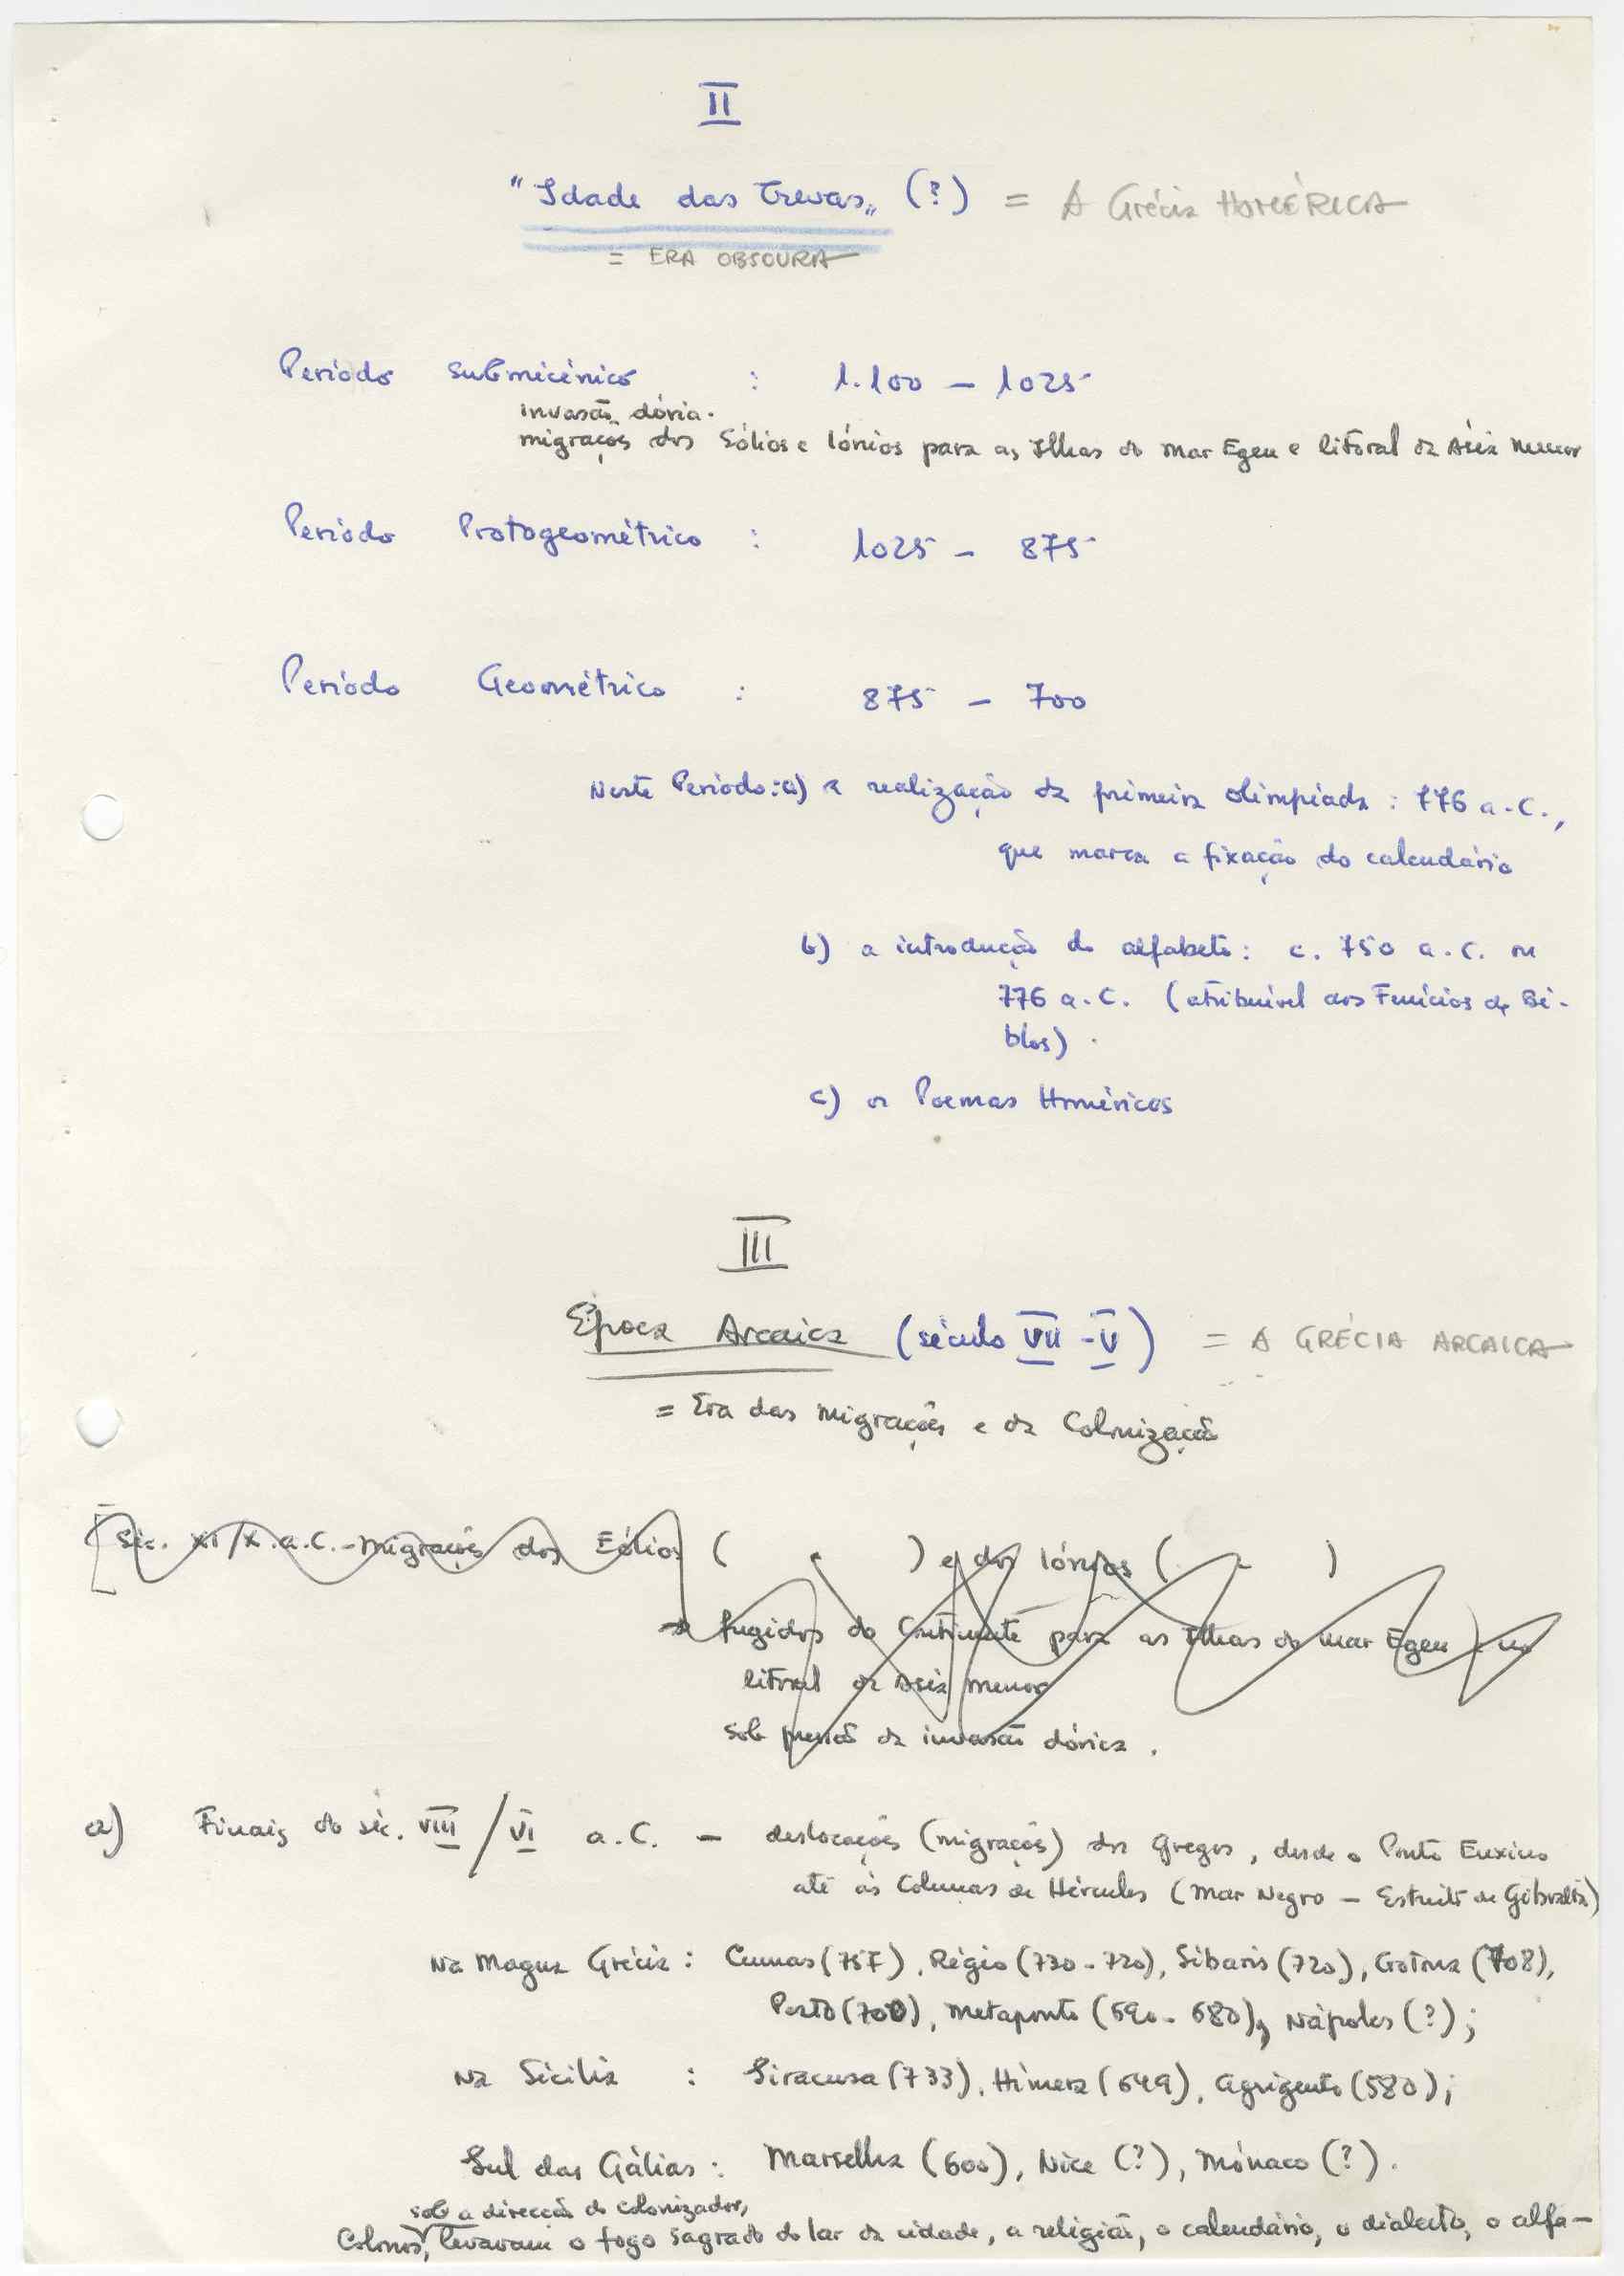 II
"Idade das Trevas" (?) = A Grécia HOMÉRICA
= ERA OBSCURA
Período Submicénico : 1.100 – 1025
invasão dória.
migrações dos Eólios e Iónios para as Ilhas do Mar Egeu e litoral da Ásia Menor
Período Protogeométrico : 1025 – 875
Período Geométrico : 875 – 700
Neste Período: a) a realização da primeira olimpíada : 776 a.C.,
que marca a fixação do calendário
b) a introdução do alfabeto: c. 750 a.C. ou
776 a.C. (atribuível aos Fenícios de Bi-
blos).
c) os Poemas Homéricos
III
Época Arcaica (século VII - V) = A GRÉCIA ARCAICA
= Era das migrações e da Colonização
[Séc. XI/X a.C. - migrações dos Eólios ( ) e dos Iónios ( )
→ fugidos do Continente para as Ilhas do Mar Egeu e no
litoral da Ásia menor
sob pressão da invasão dórica.
a) Finais do séc. VIII / VI a.C. – deslocações (migrações) dos Gregos, desde o Ponto Euxino
até às Colunas de Hércules (Mar Negro – Estreito de Gibraltar)
Na Magna Grécia : Cumas (757), Régio (730-720), Síbaris (720), Crotona (708),
(700), Metaponto (690-680), Nápoles (?);
Na Sicília : Siracusa (733), Hímera (649), Agrigento (580);
Sul das Gálias : Marselha (600), Nice (?), Mónaco (?).
sob a direcção do colonizador,
Colonos, levavam o fogo sagrado do lar da cidade, a religião, o calendário, o dialecto, o alfa-